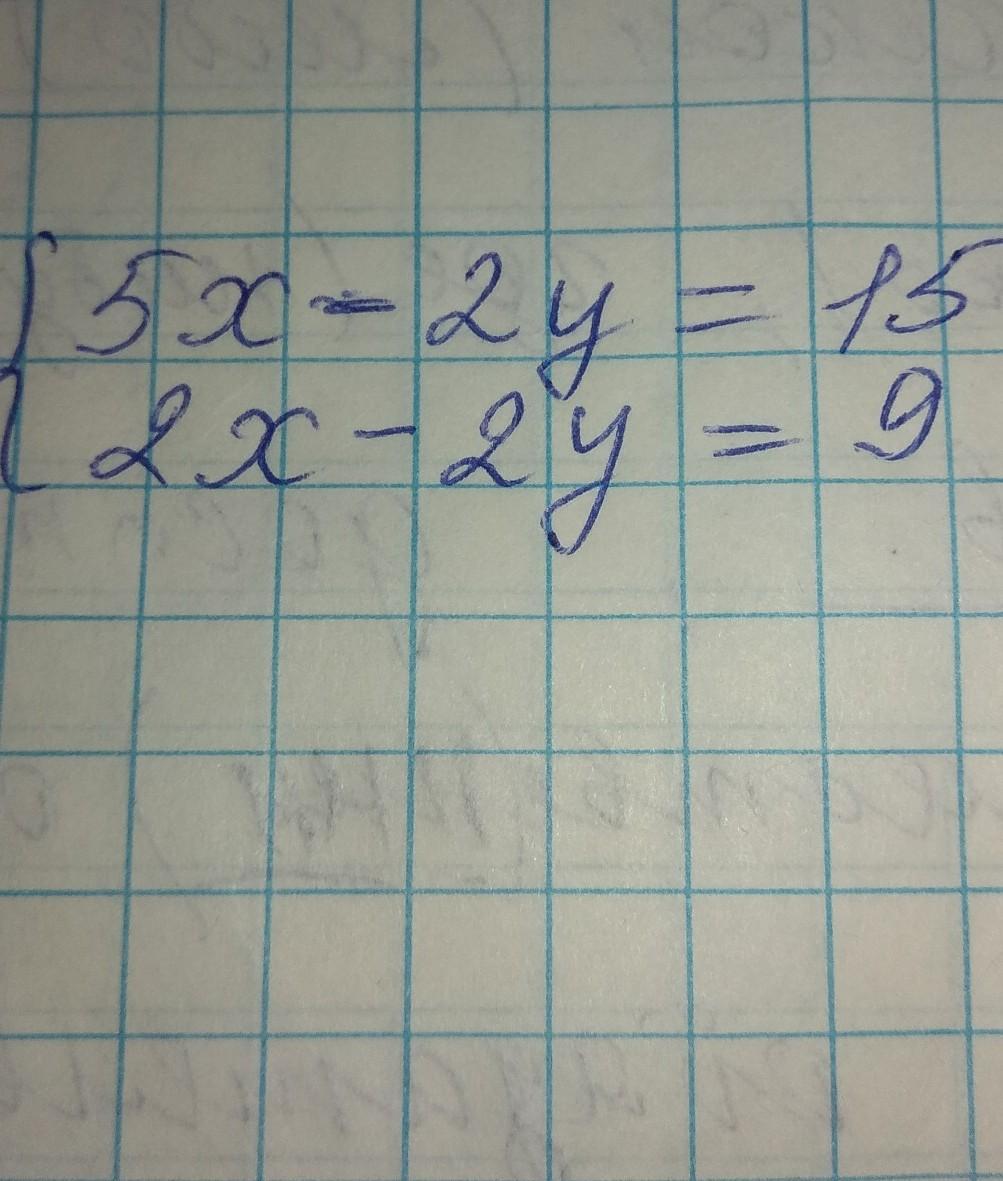 5x - 2y = 15
2x - 2y = 9